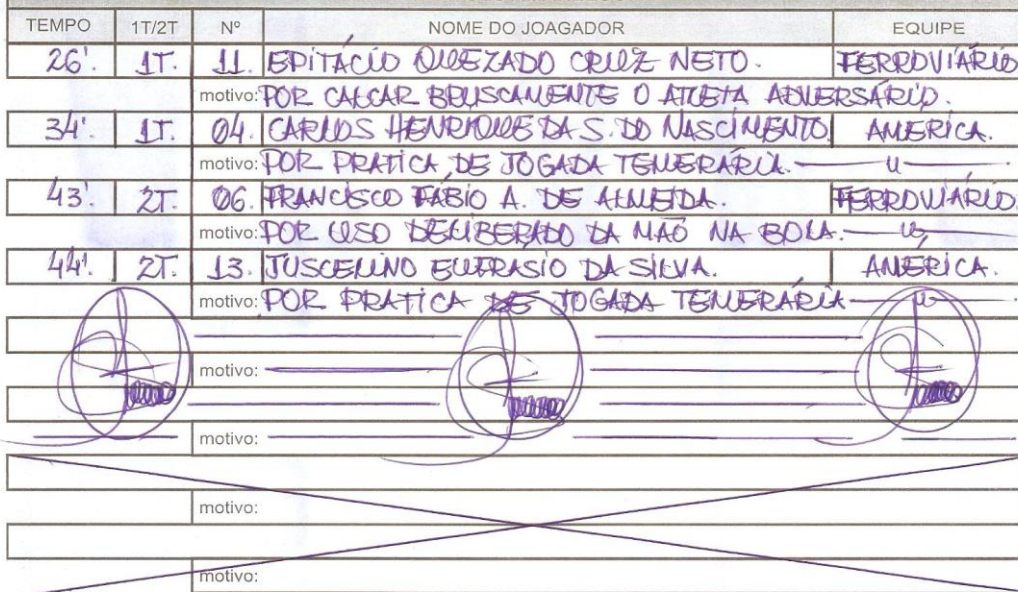 TEMPO 1T/2T Nº NOME DO JOAGADOR EQUIPE
26'. 1T. 11. EPITÁCIO QUEZADO CRUZ NETO. FERROVIÁRIO
motivo: POR CALÇAR BRUSCAMENTE O ATLETA ADVERSÁRIO.
34'. 1T. 04. CARLOS HENRIQUE DA S. DO NASCIMENTO AMERICA.
motivo: POR PRATICA DE JOGADA TEMERÁRIA. — u —
43'. 2T. 06. FRANCISCO FÁBIO A. DE ALMEIDA. FERROVIÁRIO.
motivo: POR USO DELIBERADO DA MÃO NA BOLA. — u —
44'. 2T. 13. JUSCELINO EUFRASIO DA SILVA. AMÉRICA.
motivo: POR PRATICA DE JOGADA TEMERÁRIA — u —
motivo:
motivo:
motivo:
motivo: